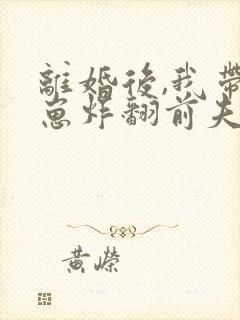 離婚後,我帶
崽炸翻前夫
黃嶸